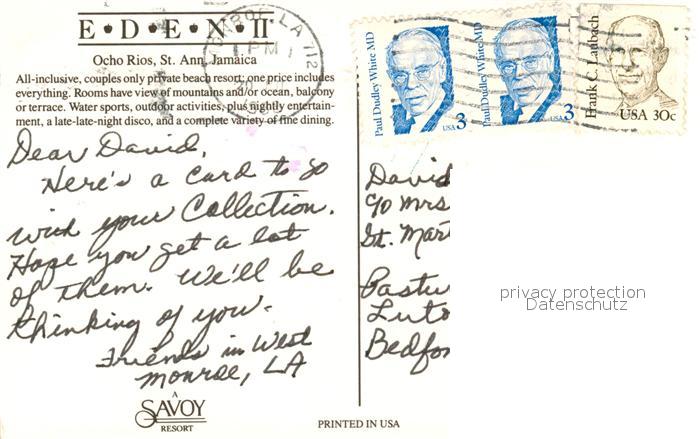 E•D•E•N II
Ocho Rios, St. Ann, Jamaica
All-inclusive, couples only private beach resort; one price includes
everything. Rooms have view of mountains and/or ocean, balcony
or terrace. Water sports, outdoor activities, plus nightly entertain-
ment, a late-late-night disco, and a complete variety of fine dining.
MONROE, LA 712
PM
Paul Dudley White MD
USA 3
Paul Dudley White MD
USA 3
Frank C. Laubach
USA 30c
Dear David,
Here's a card to go
with your Collection.
Hope you get a lot
of them. We'll be
thinking of you.
Friends in West
Monroe, LA
David
c/o Mrs
St. Mart
Pastu
Luto
Bedfor
privacy protection
Datenschutz
A
SAVOY
RESORT
PRINTED IN USA